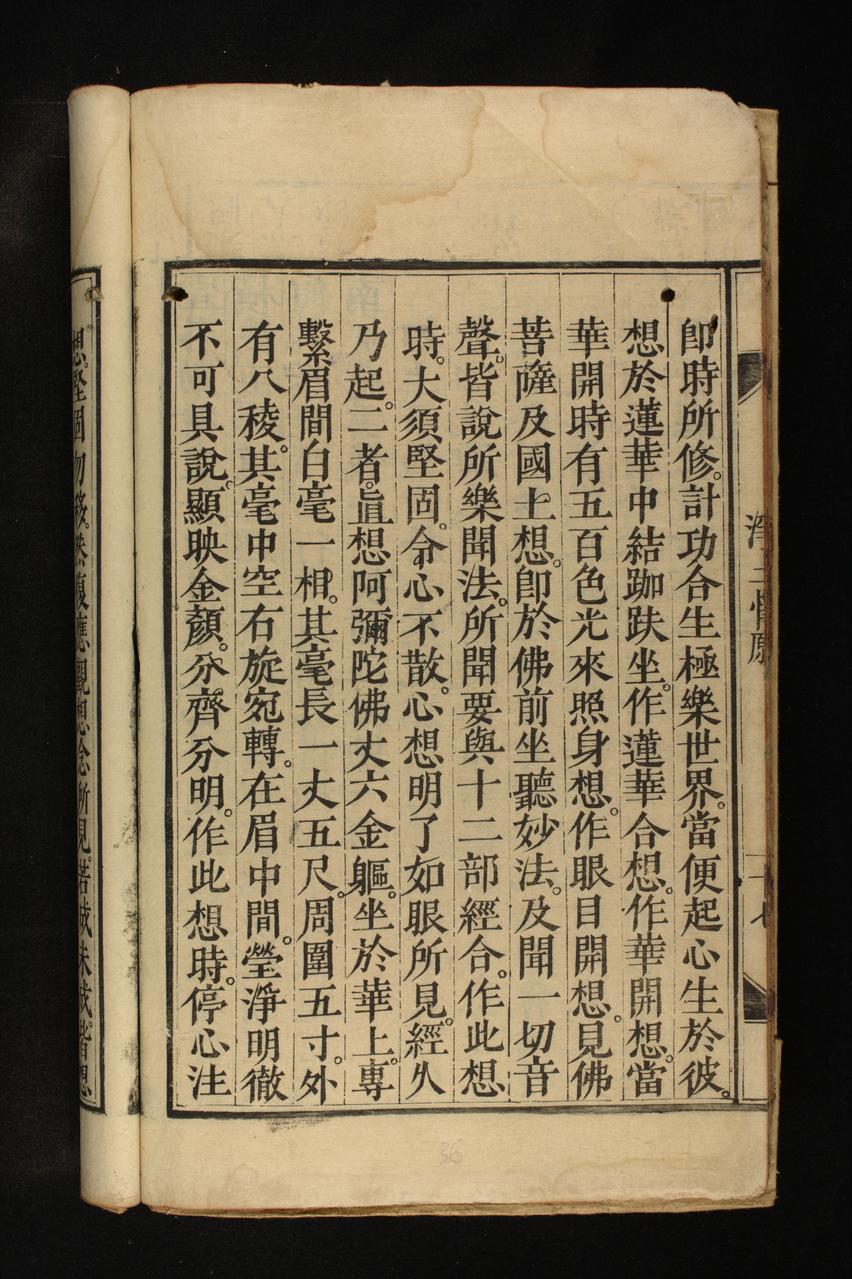 卽時所修。計功合生極樂世界。當便起心生於彼。
想於蓮華中結跏趺坐。作蓮華合想。作華開想。當
華開時有五百色光來照身想。作眼目開想。見佛
菩薩及國土想。卽於佛前坐聽妙法。及聞一切音
聲。皆說所樂聞法。所聞要與十二部經合。作此想
時。大須堅固。令心不散。心想明了如眼所見。經久
乃起。二者。眞想阿彌陀佛丈六金軀。坐於華上。專
繫眉間白毫一相。其毫長一丈五尺。周圍五寸。外
有八稜。其毫中空右旋宛轉。在眉中間。瑩淨明徹
不可具說。顯映金顏。分齊分明。作此想時。停心注
想。堅固勿移。然復應觀想念所見。若成未成。皆想
36